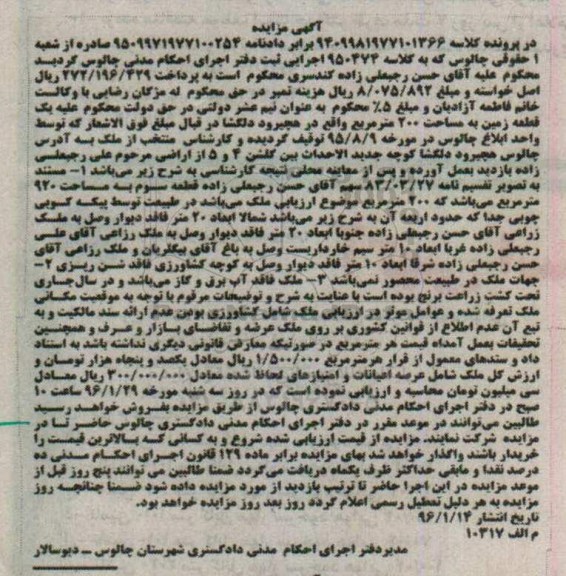 آگهی مزایده
در پرونده کلاسه ۹۴۰۹۹۸۱۹۷۷۱۰۱۳۶۶ برابر دادنامه ۹۵۰۹۹۷۱۹۷۷۱۰۰۲۵۴ صادره از شعبه
۱ حقوقی چالوس که به کلاسه ۹۵۰۴۷۴ اجرایی ثبت دفتر اجرای احکام مدنی چالوس گردید
محکوم علیه آقای حسن رجبعلی زاده کندسری محکوم است به پرداخت ۲۷۲/۱۹۶/۴۲۹ ریال
اصل خواسته و مبلغ ۸/۰۷۵/۸۹۲ ریال هزینه تمبر در حق محکوم له مژگان رضایی با وکالت
خانم فاطمه آزادیان و مبلغ ۵٪ محکوم به عنوان نیم عشر دولتی در حق دولت محکوم علیه یک
قطعه زمین به مساحت ۲۰۰ مترمربع واقع در هچیرود دلگشا در قبال مبلغ فوق الاشعار که توسط
واحد ابلاغ چالوس در مورخه ۹۵/۸/۹ توقیف گردیده و کارشناس منتخب از ملک به آدرس
چالوس هچیرود دلگشا کوچه جدید الاحداث بین گلشن ۴ و ۵ از اراضی مرحوم علی رجبعلی
زاده بازدید بعمل آورده و پس از معاینه محلی نتیجه کارشناسی به شرح زیر می‌باشد ۱- مستند
به تصویر تقسیم نامه ۸۳/۰۳/۲۷ سهم آقای حسن رجبعلی زاده قطعه سوم به مساحت ۹۲۰
مترمربع می‌باشد که ۲۰۰ مترمربع موضوع ارزیابی ملک می‌باشد در طبیعت توسط پیکه کوبی
چوبی جدا که حدود اربعه آن به شرح زیر می‌باشد شمالا ابعاد ۲۰ متر فاقد دیوار وصل به ملک
زراعی آقای حسن رجبعلی زاده جنوبا ابعاد ۲۰ متر فاقد دیوار وصل به ملک زراعی آقای علی
رجبعلی زاده غربا ابعاد ۱۰ متر سیم خارداریست وصل به باغ آقای بیگلریان و ملک زراعی آقای
حسن رجبعلی زاده شرقا ابعاد ۱۰ متر فاقد دیوار وصل به کوچه کشاورزی فاقد شن ریزی ۲-
جهات ملک در طبیعت محصور نمی‌باشد ۳- ملک فاقد آب برق و گاز می‌باشد و در سال جاری
تحت کشت زراعت برنج بوده است با عنایت به شرح و توضیحات مرقوم با توجه به موقعیت مکانی
ملک تعرفه شده و عوامل موثر در ارزیابی ملک شامل کشاورزی بودن عدم ارائه سند مالکیت و به
تبع آن عدم اطلاع از قوانین کشوری بر روی ملک عرضه و تقاضای بازار و عرف و همچنین
تحقیقات بعمل آمداده قیمت هر مترمربع در صورتیکه معارض قانونی دیگری نداشته باشد به استناد
داد و سندهای معمول از قرار هر مترمربع ۱/۵۰۰/۰۰۰ ریال معادل یکصد و پنجاه هزار تومان و
ارزش کل ملک شامل عرصه اعیانات و امتیازهای لحاظ شده معادل ۳۰۰/۰۰۰/۰۰۰ ریال معادل
سی میلیون تومان محاسبه و ارزیابی نموده است که در روز سه شنبه مورخه ۹۶/۱/۲۹ ساعت ۱۰
صبح در دفتر اجرای احکام مدنی دادگستری چالوس از طریق مزایده بفروش خواهد رسید
طالبین می‌توانند در موعد مقرر در دفتر اجرای احکام مدنی دادگستری چالوس حاضر تا در
مزایده شرکت نمایند. مزایده از قیمت ارزیابی شده شروع و به کسانی که بالاترین قیمت را
خریدار باشند واگذار خواهد شد بهای مزایده برابر ماده ۱۲۹ قانون اجرای احکام مدنی ده
درصد نقدا و مابقی حداکثر ظرف یکماه دریافت می‌گردد ضمنا طالبین می توانند پنج روز قبل از
موعد مزایده در این اجرا حاضر تا ترتیب بازدید از مورد مزایده داده شود ضمنا چنانچه روز
مزایده به هر دلیل تعطیل رسمی اعلام گردد روز بعد روز مزایده خواهد بود.
تاریخ انتشار ۹۶/۱/۱۴
م الف ۱۰۳۱۷
مدیر دفتر اجرای احکام مدنی دادگستری شهرستان چالوس – دیوسالار